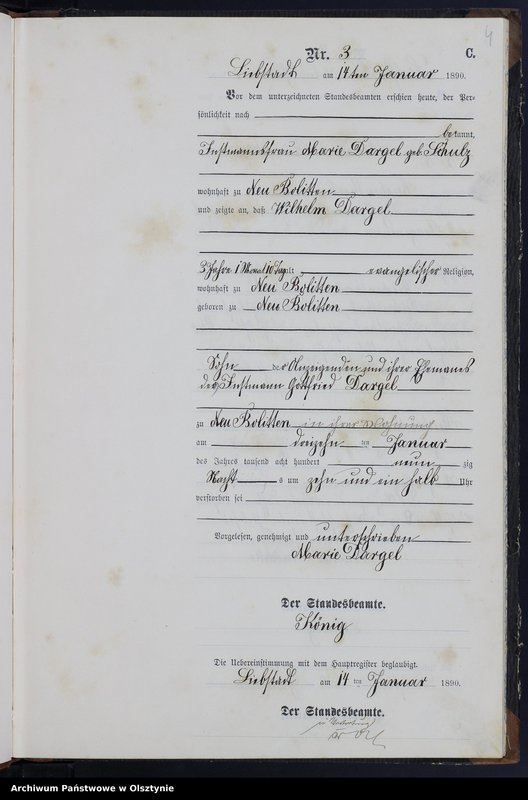 4
Nr. 3 C.
Liebstadt am 14ten Januar 1890.
Vor dem unterzeichneten Standesbeamten erschien heute, der Per-
sönlichkeit nach
bekannt,
Instmannsfrau Marie Dargel geb. Schulz
wohnhaft zu Neu Bolitten
und zeigte an, daß Wilhelm Dargel
3 Jahre 1 Monat 10 Tage alt evangelischer Religion,
wohnhaft zu Neu Bolitten
geboren zu Neu Bolitten
Sohn der Anzeigenden und ihrer Ehemanes
des Instmann Gottfried Dargel
zu Neu Bolitten in ihrer Wohnung
am dreizehn ten Januar
des Jahres tausend acht hundert neun zig
Nacht s um zehn und ein halb Uhr
verstorben sei
Vorgelesen, genehmigt und unterschrieben
Marie Dargel
Der Standesbeamte.
König
Die Uebereinstimmung mit dem Hauptregister beglaubigt.
Liebstadt am 14 ten Januar 1890.
Der Standesbeamte.
in Vertretung
Archiwum Państwowe w Olsztynie